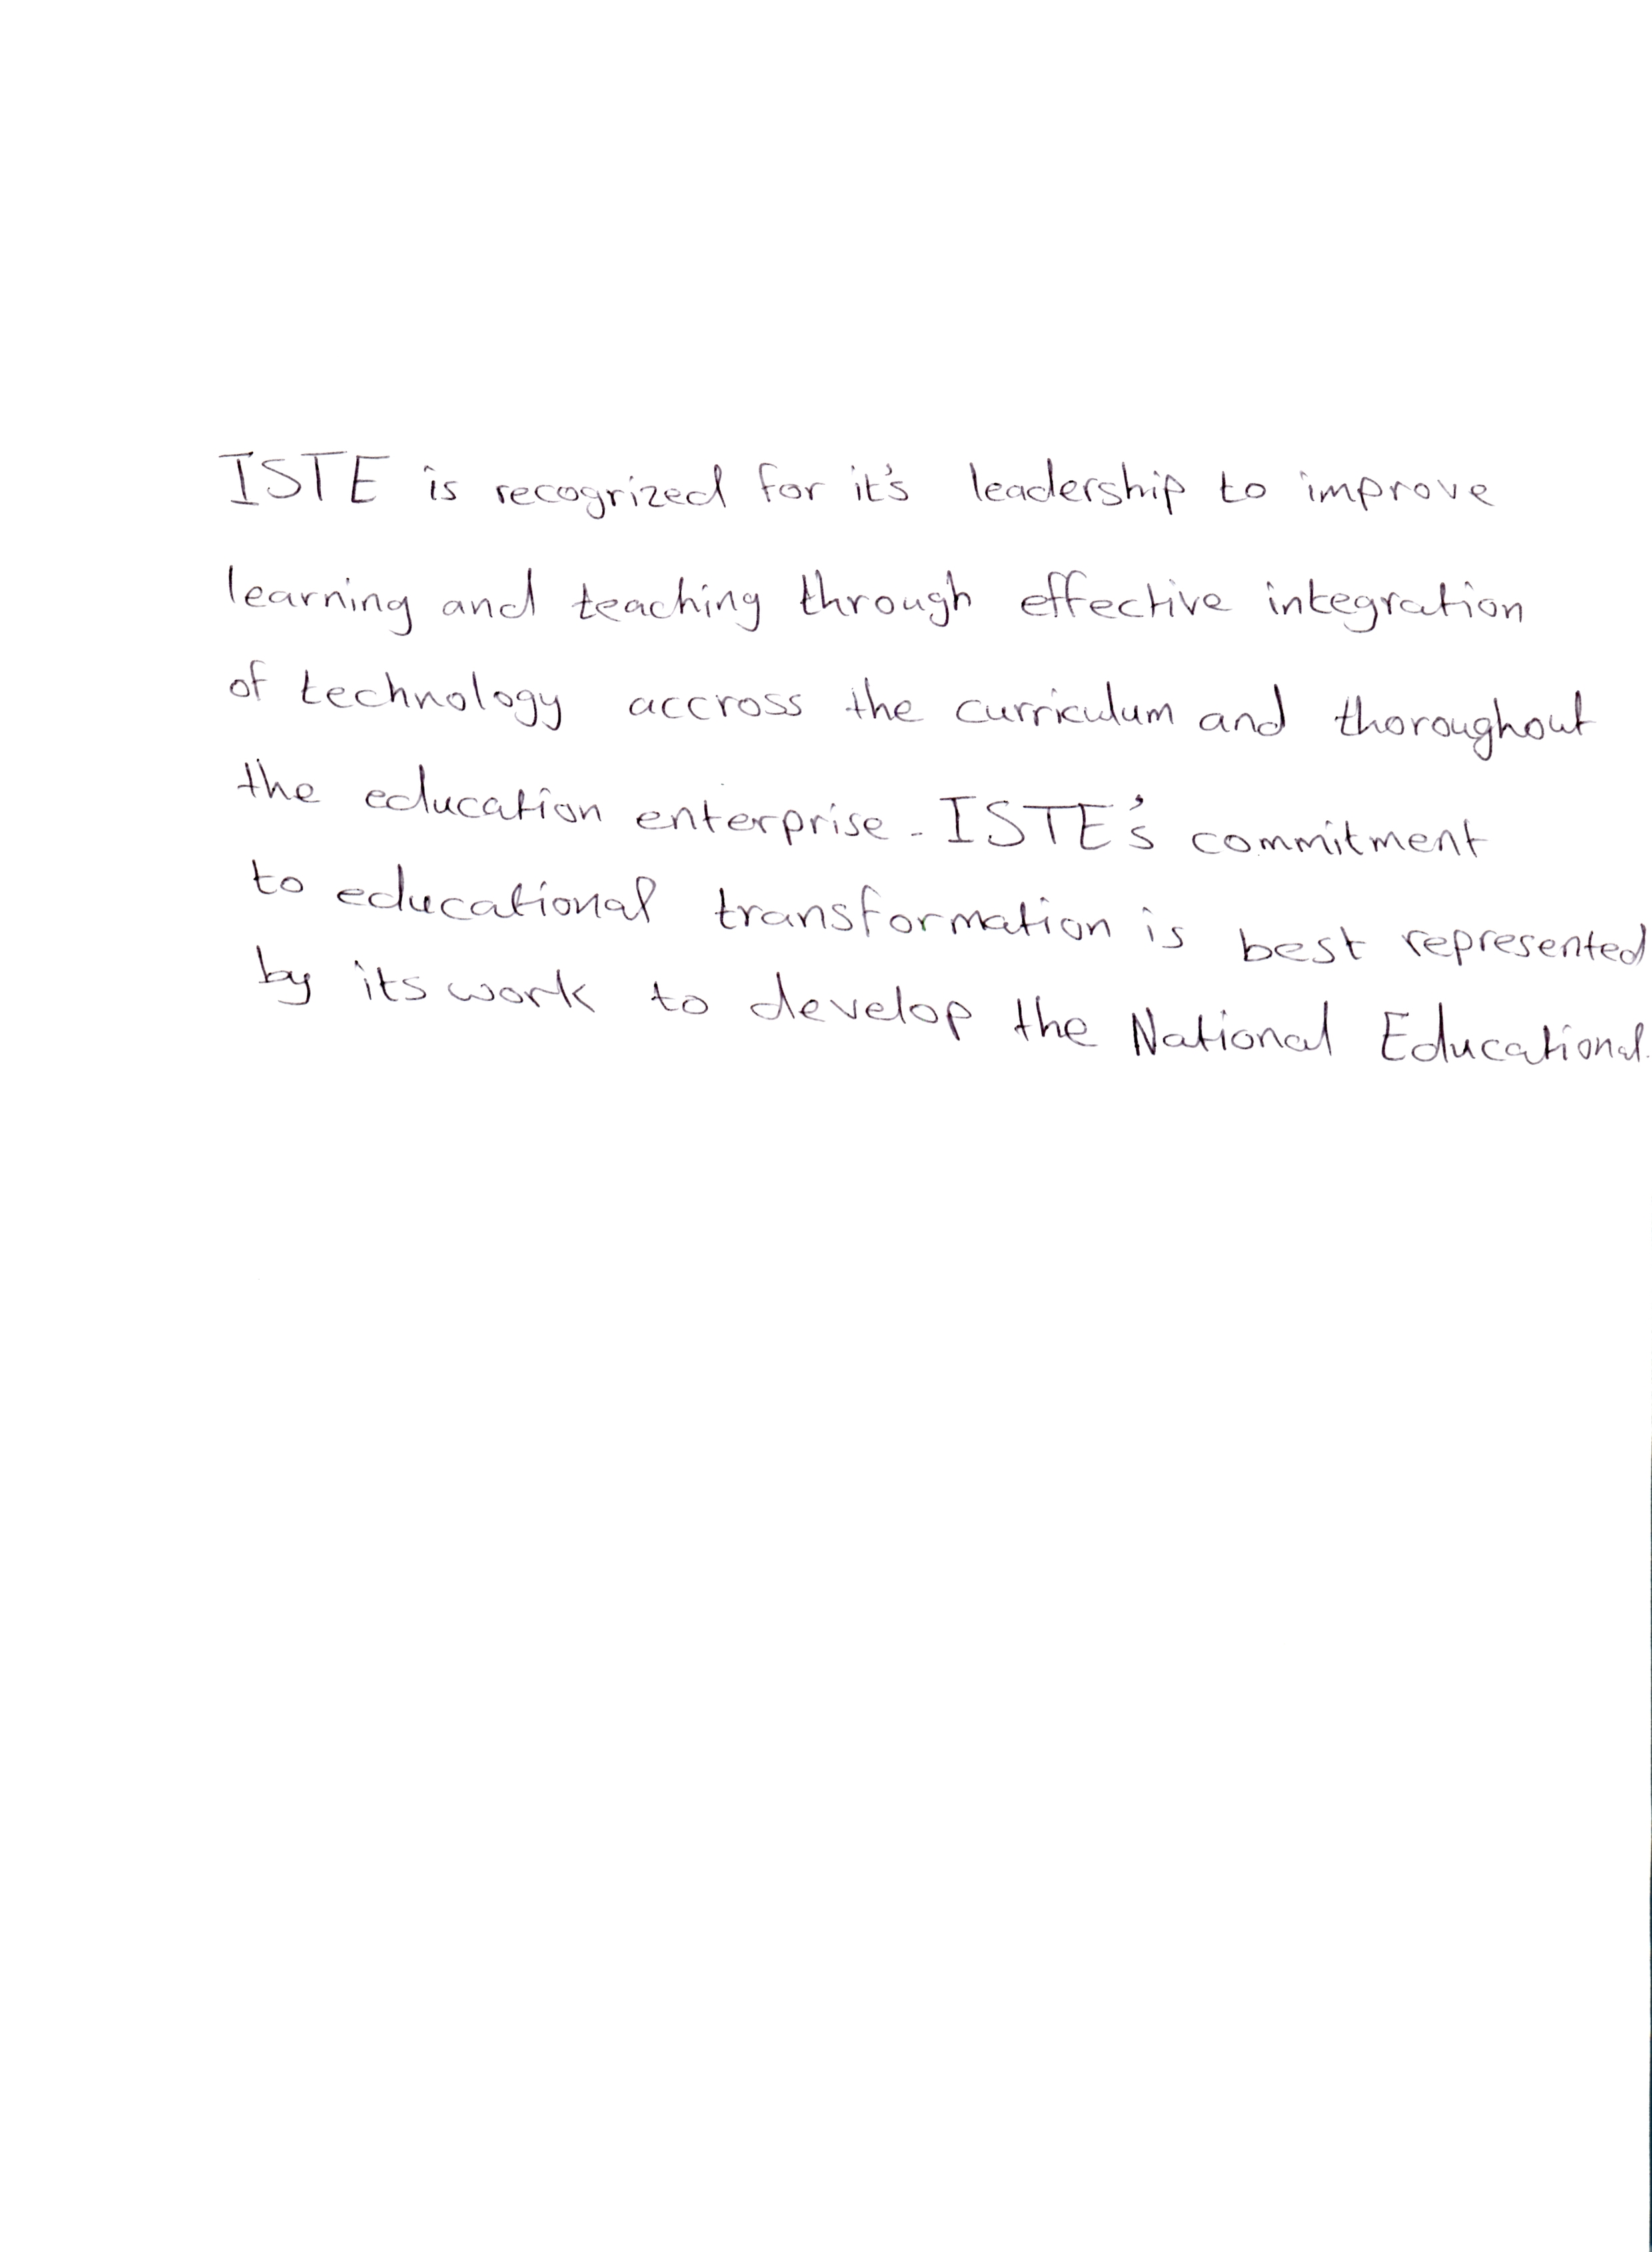 ISTE is recognized for it's leadership to improve
learning and teaching through effective integration
of technology accross the curriculum and thoroughout
the education enterprise. ISTE's commitment
to educational transformation is best represented
by its work to develop the National Educational.